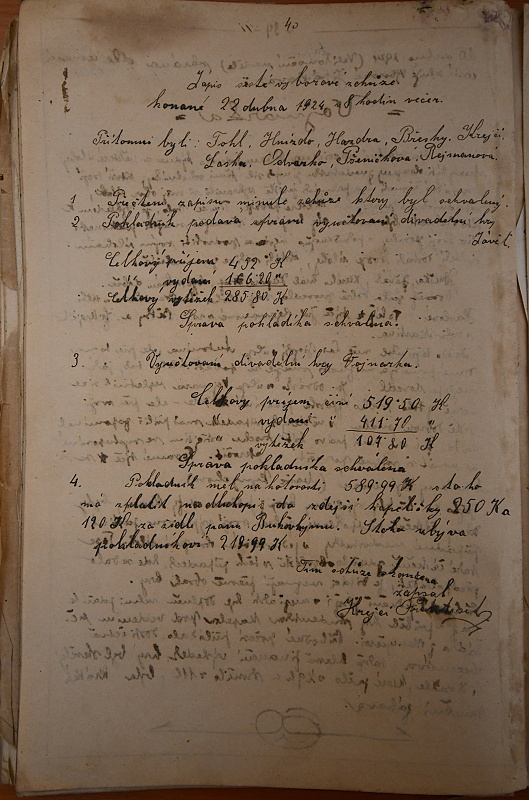 40
Zápis šesté výborové schůze
konané 22 dubna 1924 v 8 hodin večer.
Přítomni byli: Tohl, Hnízdo, Hazdra, Břesky, Krejčí
Láska, Odvarko, Pšeničková, Rejmanová
1 Přečtení zápisu minulé schůze který byl schválený.
2. Pokladník podává zprávu vyučtovaní divadelní hry
Závěť.
Celkový príjem 452 " K
vydání 166 20 "
Celkový výtěžek 285 80 K
Správa pokladíka schválena.
3. Vyučtovaní divadelní hry Vojnarka.
Celkový príjem činí 519 50 K
vydání " 411 70 "
výtěžek 107 80 K
Správa pokladníka schválena
4. Pokladník měl na hotovosti 589.99 K z toho
má splatit na dluhopis do zdejší kapeličky 250 K a
120 K za židli panu Bukovkýmu. Skoka zbývá
pokladníkovi 219.99 K
Tím schůze skončena
zapsal
Krejčí